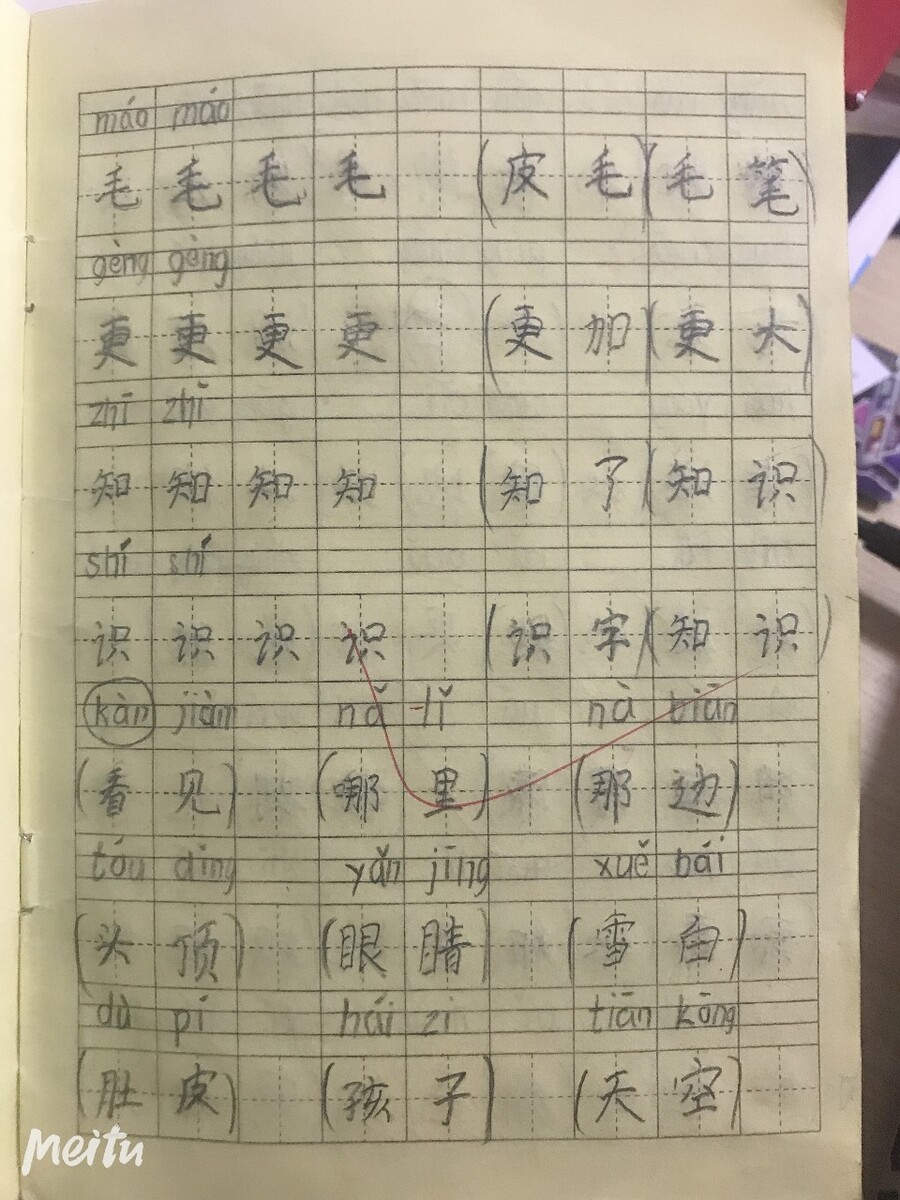 máo máo
毛 毛 毛 毛 (皮 毛)(毛 笔)
gèng gèng
更 更 更 更 (更 加)(更 大)
zhī zhī
知 知 知 知 (知 了)(知 识)
shí shí
识 识 识 识 (识 字)(知 识)
kàn jiàn nǎ lǐ nà biān
(看 见) (哪 里) (那 边)
tóu dǐng yǎn jīng xuě bái
(头 顶) (眼 睛) (雪 白)
dù pí hái zi tiān kōng
(肚 皮) (孩 子) (天 空)
Meitu